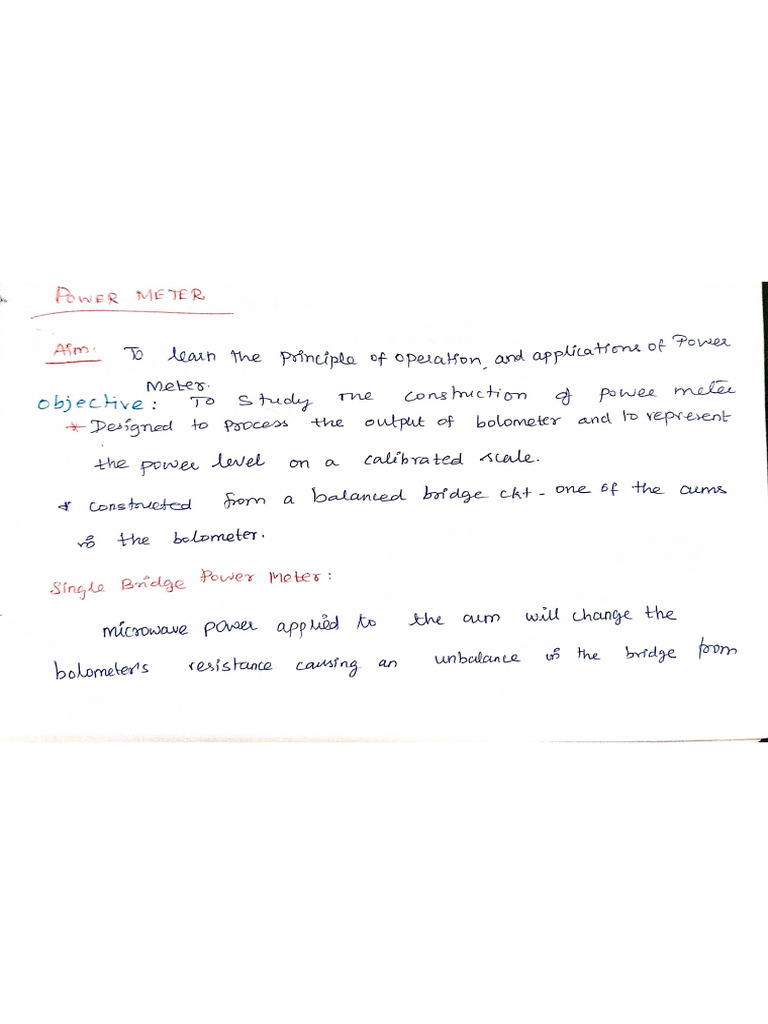 POWER METER
Aim: To learn the principle of operation, and applications of Power
Meter.
Objective: To study the construction of power meter
* Designed to process the output of bolometer and to represent
the power level on a calibrated scale.
* constructed from a balanced bridge ckt - one of the arms
is the bolometer.
Single Bridge Power Meter:
microwave power applied to the arm will change the
bolometer's resistance causing an unbalance is the bridge from